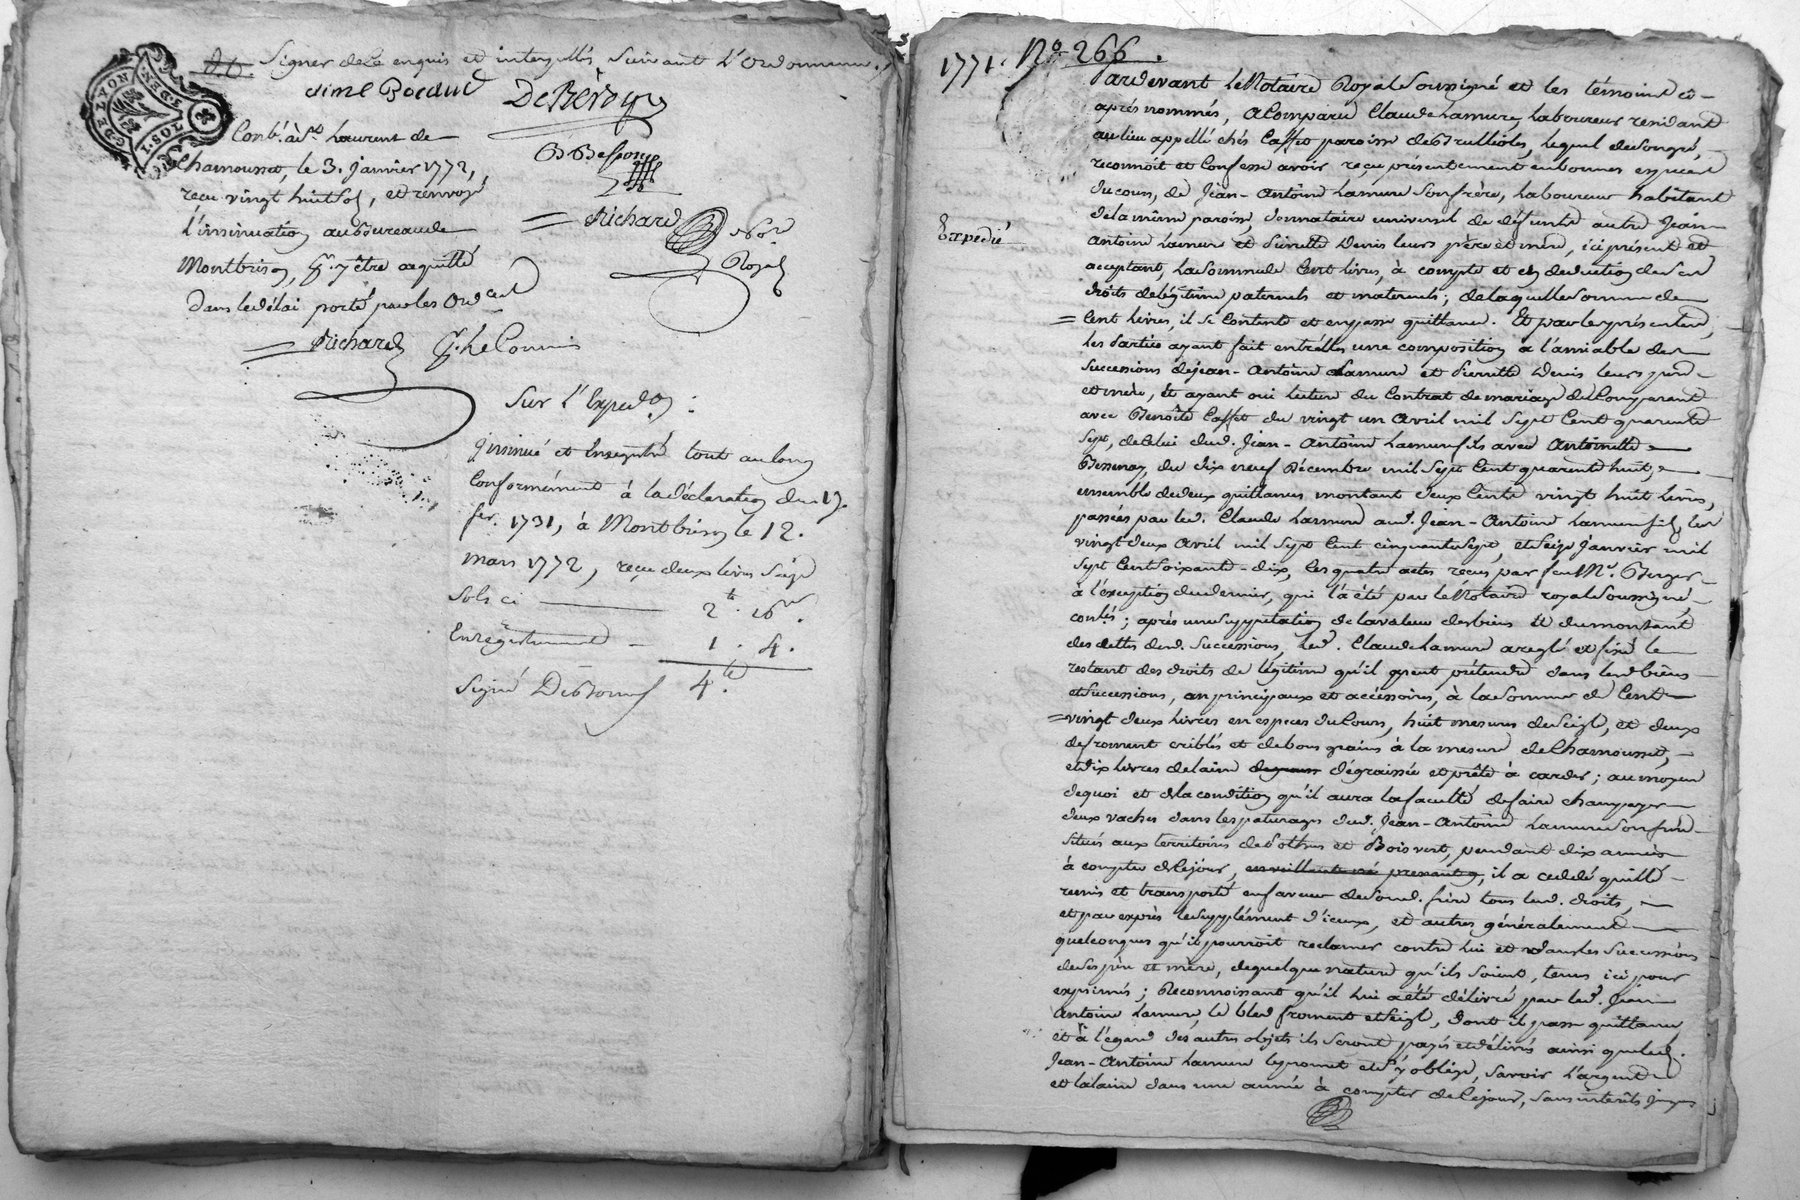 Signer de ce enquis et interpellés, suivant l'ordonnance.
aimé Poedut DeBéroy
G. DE LYON
1. SOL
Conlé. à St. Laurent de
Chamousset, le 3. Janvier 1772,
reçu vingt huit sols, et renvoyé
l'insinuation au Bureau de
Montbrison, pr. y être acquitté
dans le délai porté par les Ordces
Richard pr. le Commis
B Besson
Richard Nore
Royal
Sur l'Expedon :
Insinué et Enregistré tout au long
conformément à la déclaration du 17.
fer. 1731, à Montbrison le 12.
mars 1772, reçu deux livres seize
sols ci 2 tt. 16 s.
Enregistrement 1. 4.
Signé 4 tt.
1771. No. 266.
Expedié
Pardevant le Notaire Royal soussigné et les témoins ci-
après nommés, a Comparu Claude Lamure, laboureur residant
au lieu appellé chés Caffet paroisse de Brullioles, lequel de son gré,
reconnoit et Confesse avoir reçu présentement en bonnes especes
du cours, de Jean-Antoine Lamure son frère, laboureur habitant
de la même paroisse, donnataire universel de défunts autre Jean
Antoine Lamure et Pierrette Denis leurs père et mere, ici présent et
acceptant, la somme de Cent livres, à compte et en deduction de ses
droits de légitime paternels et maternels; de laquelle somme de
Cent livres, il se Contente et en passe quittance. Et par les présentes,
les Parties ayant fait entr'elles une composition à l'amiable des
Successions de Jean-Antoine Lamure et Pierrette Denis leurs pere
et mere, et ayant oui lecture du Contrat de mariage du Comparant
avec Benoite Caffet du vingt un Avril mil Sept Cent quarante
Sept, de Celui dud. Jean-Antoine Lamure fils avec Antoinette
Bessenay, du dix neuf Décembre mil Sept Cent quarente huit,
ensemble de deux quittances montant deux Cents vingt huit livres,
passées par led. Claude Lamure aud. Jean-Antoine Lamure fils, les
vingt deux Avril mil Sept Cent cinquante Sept, et Seize Janvier mil
Sept Cent Soixante-dix, les quatre actes reçus par feu Me. Berger
à l'exception du dernier, qui l'a été par le Notaire royal Soussigné
conlés; après une supputation de la valeur des biens et du montant
des dettes desd. Successions, led. Claude Lamure a reglé et fixé le
restant des droits de légitime qu'il peut prétendre dans lesd. biens
et Successions, en principaux et accessoires, à la somme de Cent
vingt deux livres en especes du Cours, huit mesures de seigle, et deux
de froment criblés et de bons grains à la mesure de Chamousset,
et dix livres de laine dégraissée et prête à carder; au moyen
de quoi et de la condition qu'il aura la faculté de faire champeyer
deux vaches dans les paturages dud. Jean-Antoine Lamure son frere
Situés aux territoires de Pothus et Bois vert, pendant dix années
à compter de Cejour, il a cedé quitté
remis et transporté en faveur de son d. frere tous lesd. droits,
et par exprès le supplément d'iceux, et autres généralement
quelconques qu'il pourroit reclamer contre lui et dans les Successions
de ses père et mère, de quelque nature qu'ils soient, tenus ici pour
exprimés; Reconnoissant qu'il lui a été délivré par led. Jean
Antoine Lamure, le bled froment et seigle, dont il passe quittance
et à l'égard des autres objets ils seront payés et délivrés ainsi que led.
Jean-Antoine Lamure le promet et s'y oblige, savoir l'argent
et la laine dans une année à compter de Cejour, sans intérêts jusques